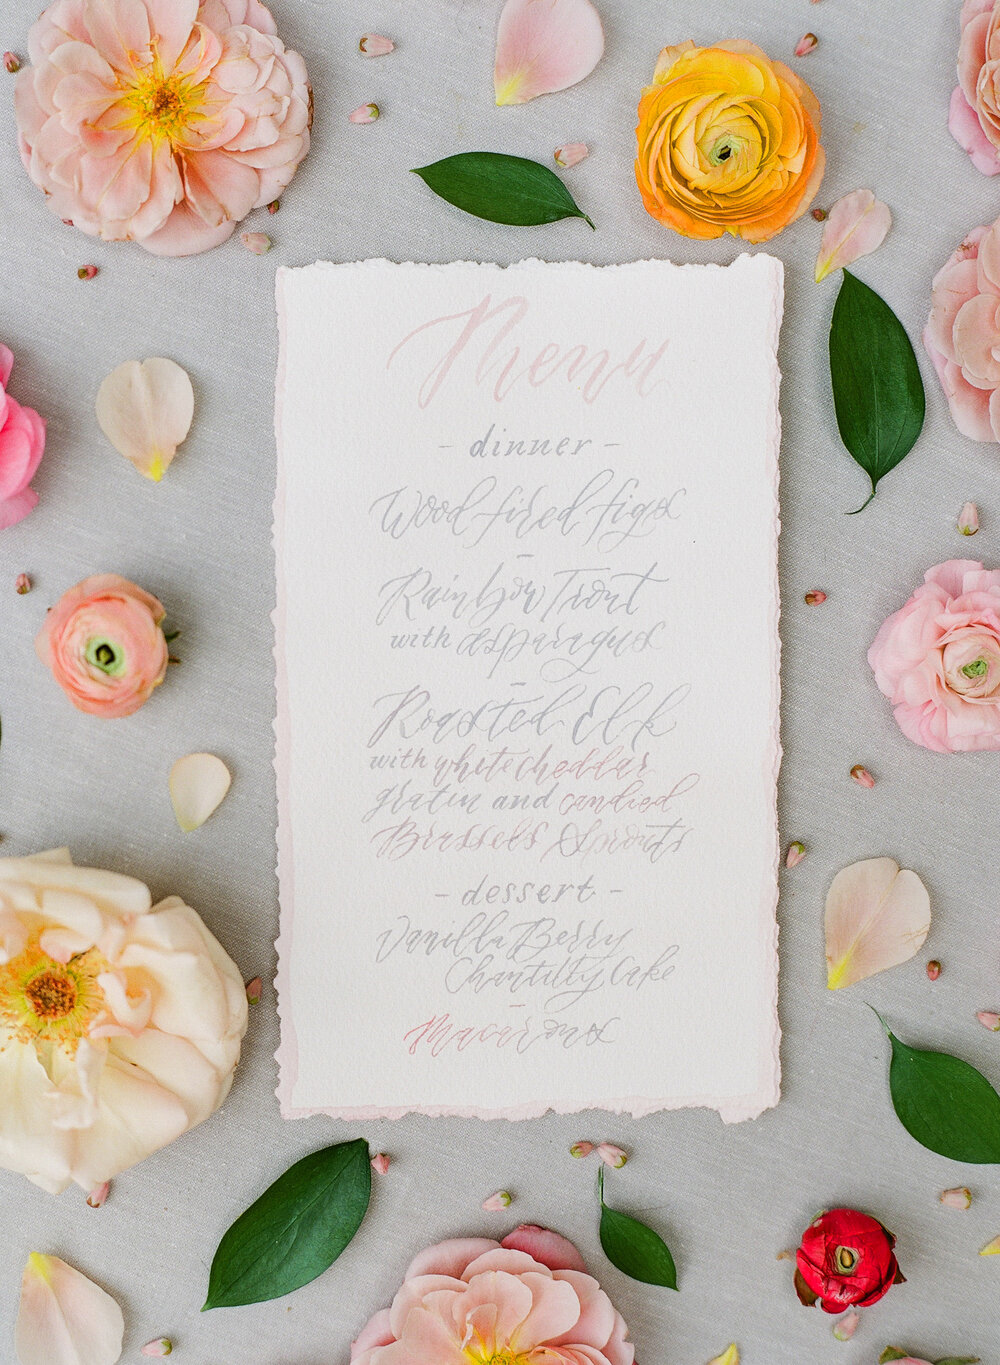 Menu
- dinner -
Wood fired figs
-
Rainbow Trout
with asparagus
-
Roasted Elk
with white cheddar
gratin and candied
Brussels Sprouts
- dessert -
Vanilla Berry
Chantilly Cake
-
Macarons